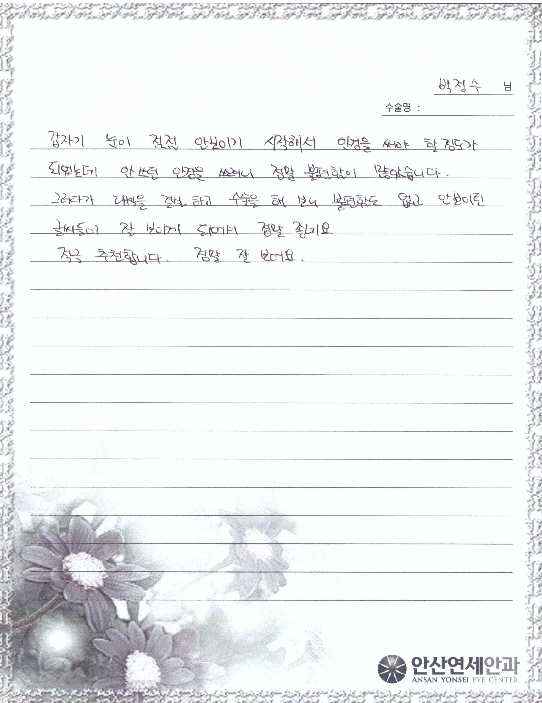 박정수 님
수술명 :
갑자기 눈이 점점 안보이기 시작해서 안경을 써야 할 정도가
되었는데 안쓰던 안경을 쓰려니 정말 불편함이 많았습니다.
그러다가 를 하고 수술을 해 보니 불편함도 없고 안보이던
글씨들이 잘 보이게 되어서 정말 좋네요
적극 추천합니다. 정말 잘 보여요.
안산연세안과
ANSAN YONSEI EYE CENTER